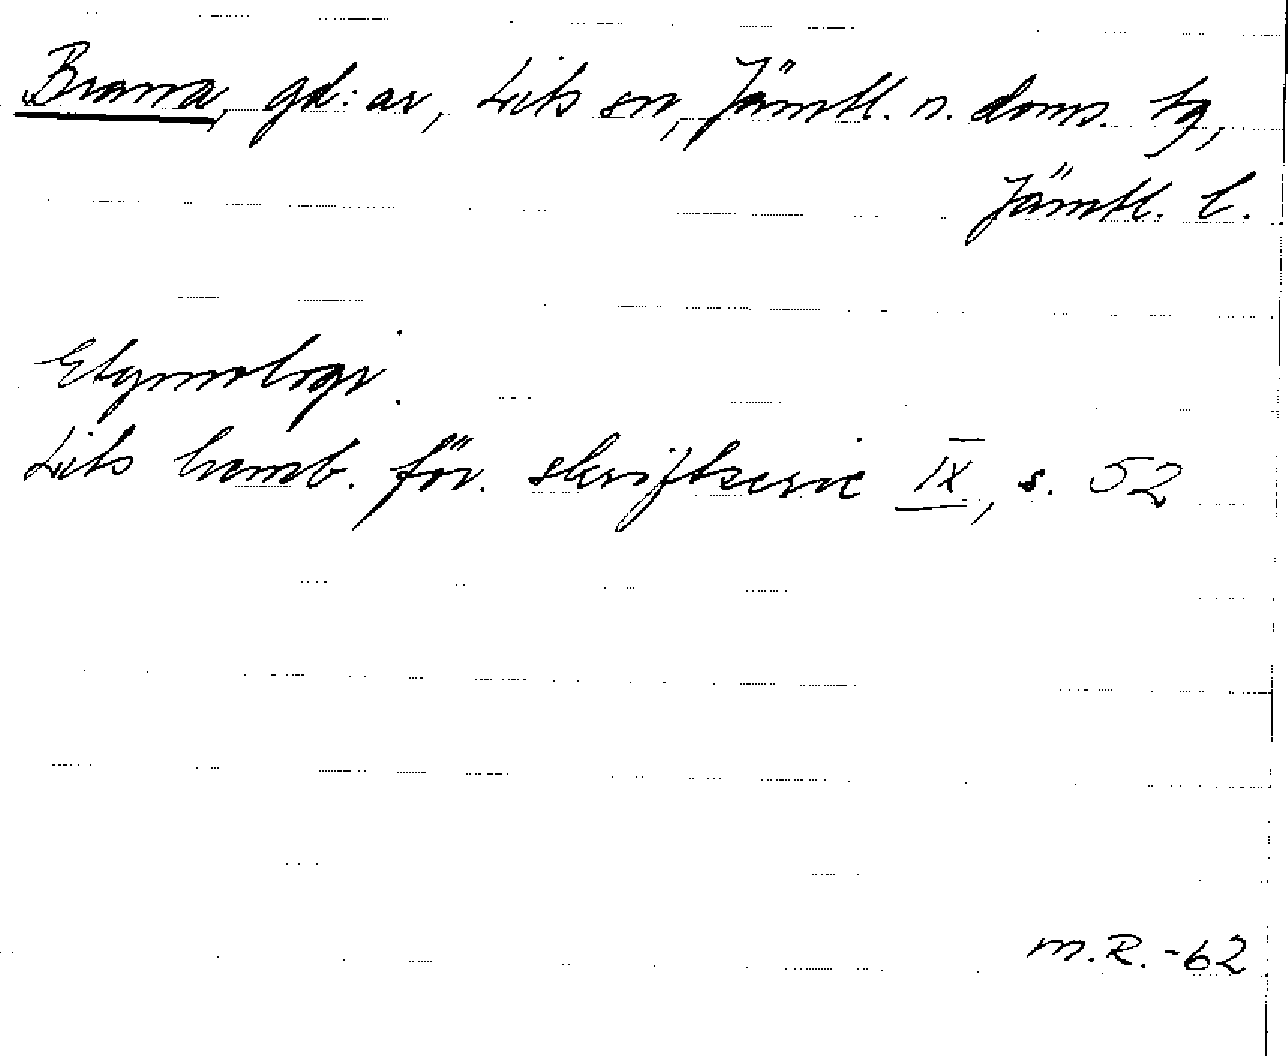 Branna, gd:ar, Lits sn, Jämtl. n. doms. tg,
Jämtl. l.
Etymologi.
Lits hemb. för. skriftserie IX, s. 52
M.R. -62